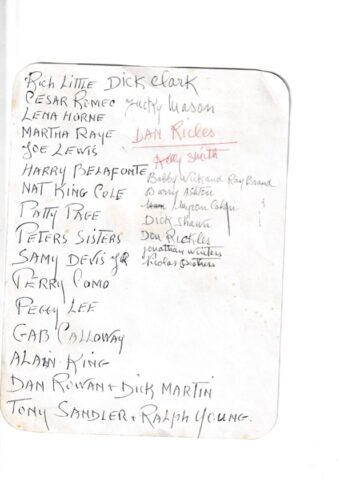 Rich Little Dick Clark
CESAR ROMEO Jacky Mason
LENA HORNE
MARTHA RAYE DAN Ricles
JOE LEWIS Kelly Smith
HARRY BELAFONTE Bobby Wick and Ray Brand
NAT KING COLE Barry Ashton
PATTY PAGE Myron Cohen
PETERS SISTERS Dick Shawn
SAMY DEVIS JR Don Rickles
Jonathan Winters
PERRY COMO Nicolas Brothers
PEGGY LEE
GAB CALLOWAY
ALAIN KING
DAN ROWAN + DICK MARTIN
TONY SANDLER + RALPH YOUNG.